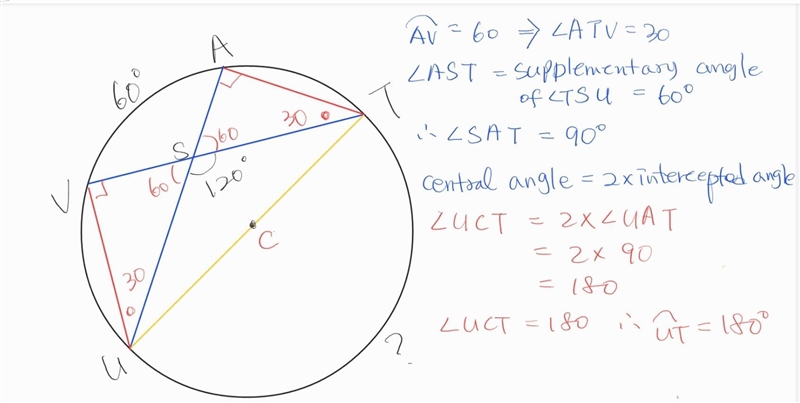 A
60°
T
30
60
S
120°
60
V
C
30
U
?
A͡V = 60 ⇒ ∠ATV = 30
∠AST = supplementary angle
of ∠TSU = 60°
∴ ∠SAT = 90°
central angle = 2x intercepted angle
∠UCT = 2x∠UAT
= 2x 90
= 180
∠UCT = 180 ∴ U͡T = 180°